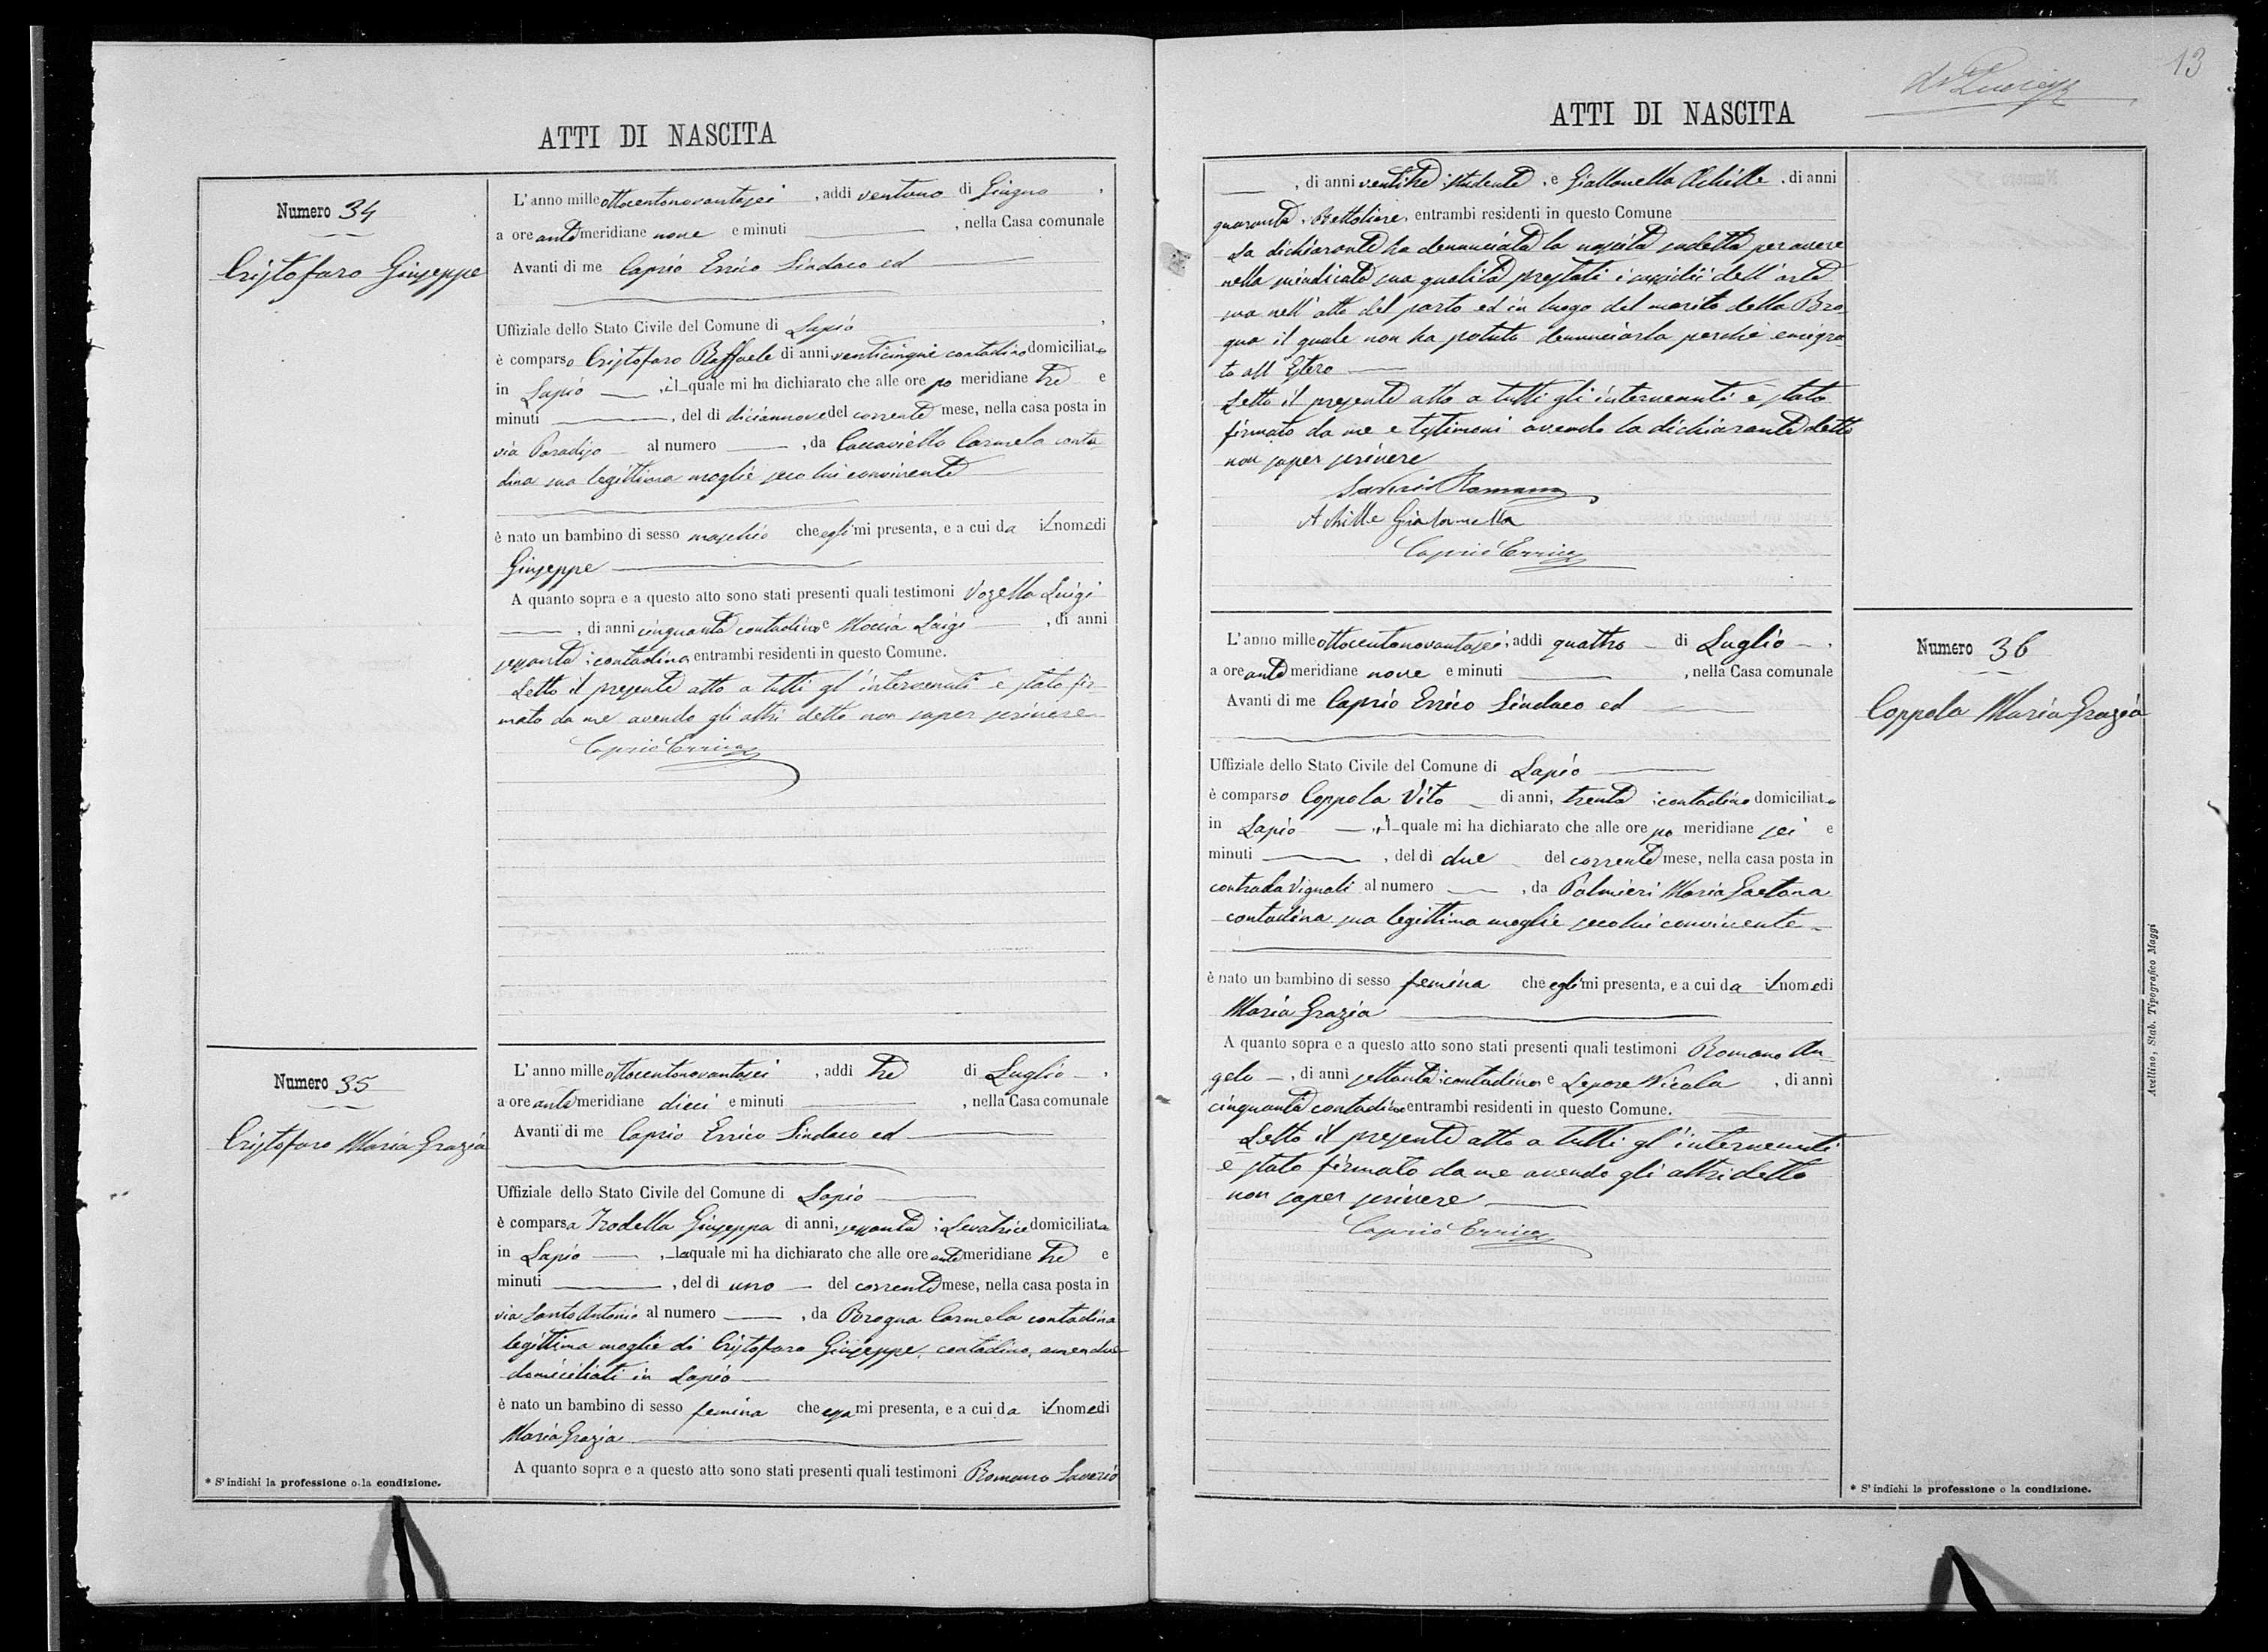 ATTI DI NASCITA
Numero 34
Cristofaro Giuseppe
L'anno mille ottocentonovantasei, addi ventuno di Giugno,
a ore ante meridiane nove e minuti, nella Casa comunale
Avanti di me Caprio Errico Sindaco ed
Uffiziale dello Stato Civile del Comune di Lapio,
è comparso Cristofaro Raffaele di anni venticinque contadino domiciliato
in Lapio, il quale mi ha dichiarato che alle ore po meridiane tre e
minuti, del dì diciannove del corrente mese, nella casa posta in
via Paradiso al numero, da Caccaviello Carmela conta
dina sua legittima moglie seco lui convivente
è nato un bambino di sesso maschio che egli mi presenta, e a cui da il nome di
Giuseppe
A quanto sopra e a questo atto sono stati presenti quali testimoni Vozella Luigi
, di anni cinquanta contadino e Moccia Luigi, di anni
sessanta contadino, entrambi residenti in questo Comune.
Letto il presente atto a tutti gl'intervenuti è stato fir
mato da me avendo gli altri detto non saper scrivere
Caprio Errico
Numero 35
Cristofaro Maria Grazia
L'anno mille ottocentonovantasei, addi tre di Luglio,
a ore ante meridiane dieci e minuti, nella Casa comunale
Avanti di me Caprio Errico Sindaco ed
Uffiziale dello Stato Civile del Comune di Lapio
è comparsa Trodella Giuseppa di anni, sessanta; Levatrice domiciliata
in Lapio, la quale mi ha dichiarato che alle ore ante meridiane tre e
minuti, del dì uno del corrente mese, nella casa posta in
via Santo Antonio al numero, da Brogna Carmela contadina
legittima moglie di Cristofaro Giuseppe, contadino, amendue
domiciliati in Lapio
è nato un bambino di sesso femina che essa mi presenta, e a cui da il nome di
Maria Grazia
A quanto sopra e a questo atto sono stati presenti quali testimoni Romano Saverio
* S'indichi la professione o la condizione.
13
ATTI DI NASCITA
, di anni ventitre studente, e Giallonella Achille, di anni
quaranta, Bettoliere, entrambi residenti in questo Comune
La dichiarante ha denunciata la nascita sudetta per avere
nella suindicata sua qualità prestati i sussidii dell'arte
sua nell'atto del parto ed in luogo del marito della Bro
gna il quale non ha potuto denunciarla perchè emigra
to all'Estero
Letto il presente atto a tutti gli intervenuti è stato
firmato da me e testimoni avendo la dichiarante detto
non saper scrivere
Saverio Romano
Achille Giallonella
Caprio Errico
Numero 36
Coppola Maria Grazia
L'anno mille ottocentonovantasei, addi quattro di Luglio,
a ore ante meridiane nove e minuti, nella Casa comunale
Avanti di me Caprio Errico Sindaco ed
Uffiziale dello Stato Civile del Comune di Lapio
è comparso Coppola Vito di anni, trenta; contadino domiciliato
in Lapio, il quale mi ha dichiarato che alle ore po meridiane sei e
minuti, del dì due del corrente mese, nella casa posta in
contrada Vignali al numero, da Palmieri Maria Gaetana
contadina sua legittima moglie seco lui convivente
è nato un bambino di sesso femina che egli mi presenta, e a cui da il nome di
Maria Grazia
A quanto sopra e a questo atto sono stati presenti quali testimoni Romano An
gelo, di anni settanta contadino e Lepore Nicola, di anni
cinquanta contadino entrambi residenti in questo Comune.
Letto il presente atto a tutti gl'intervenuti
è stato firmato da me avendo gli altri detto
non saper scrivere
Caprio Errico
* S'indichi la professione o la condizione.
Avellino, Stab. Tipografico Maggi